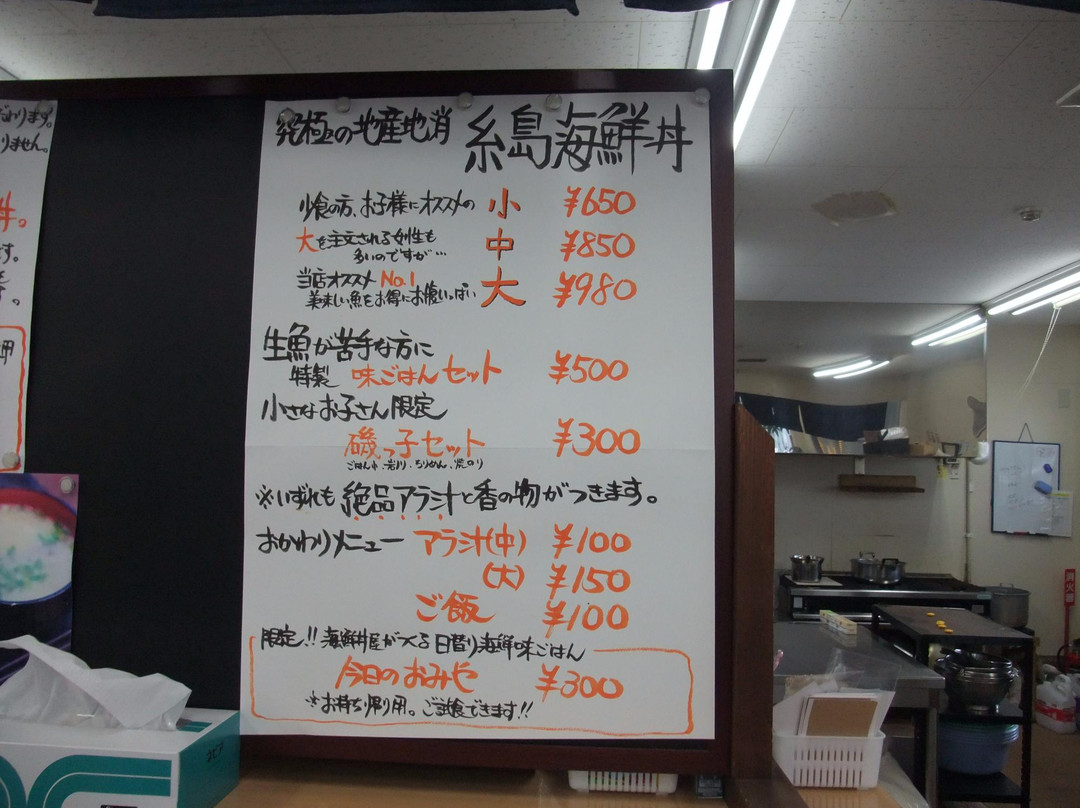 究極の地産地消 糸島海鮮丼
少食の方、お子様にオススメの 小 ¥650
大を注文される女性も
多いのですが… 中 ¥850
当店オススメ No.1
美味しい魚をお得にお腹いっぱい 大 ¥980
生魚が苦手な方に
特製 味ごはんセット ¥500
小さなお子さん限定
磯っ子セット ¥300
※いずれも絶品アラ汁と香の物がつきます。
おかわりメニュー アラ汁(中) ¥100
(大) ¥150
ご飯 ¥100
限定!! 海鮮丼屋がつくる日替り海鮮味ごはん
今日のおみや ¥300
※お持ち帰り用。ご試食できます!!
ります。
りません。
丼。
す。